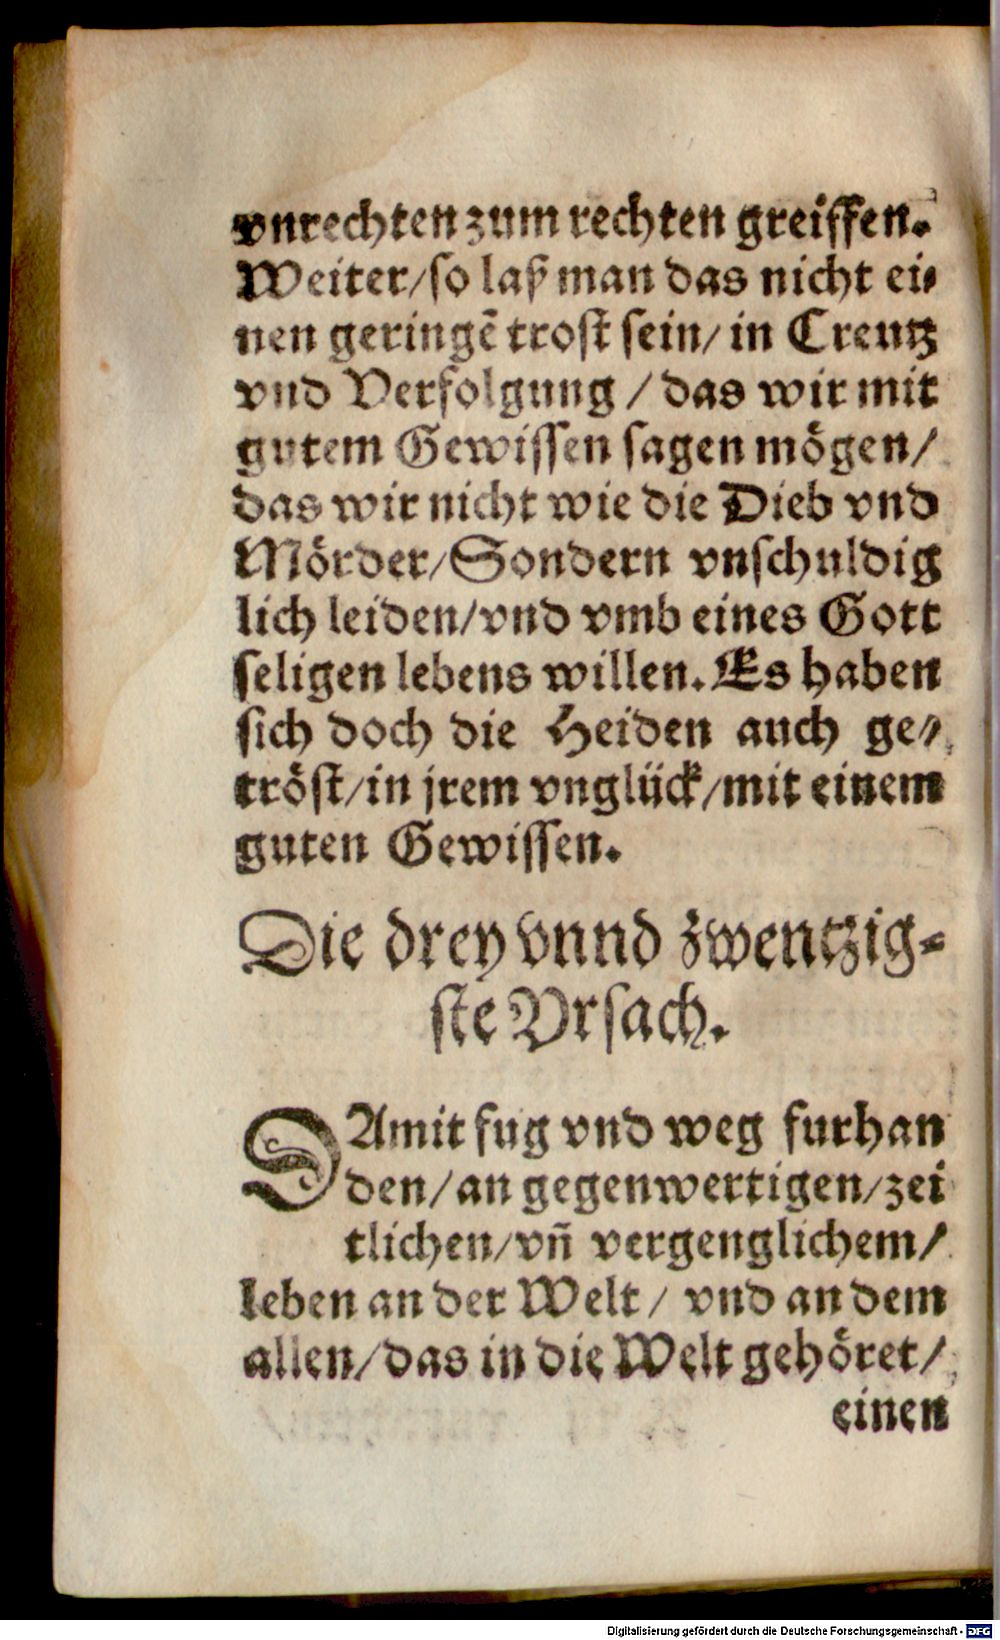 vnrechten zum rechten greiffen.
Weiter/so laß man das nicht ei⸗
nen geringẽ trost sein/ in Creutz
vnd Verfolgung / das wir mit
gutem Gewissen sagen mögen/
das wir nicht wie die Dieb vnd
Mörder/Sondern vnschuldig
lich leiden/vnd vmb eines Gott
seligen lebens willen. Es haben
sich doch die Heiden auch ge⸗
tröst/in jrem vnglück/mit einem
guten Gewissen.
Die drey vnnd zwentzig⸗
ste Vrsach.
DAmit fug vnd weg furhan
den/an gegenwertigen/zei
tlichen/vñ vergenglichem/
leben an der Welt / vnd an dem
allen/das in die Welt gehöret/
einen
Digitalisierung gefördert durch die Deutsche Forschungsgemeinschaft - DFG